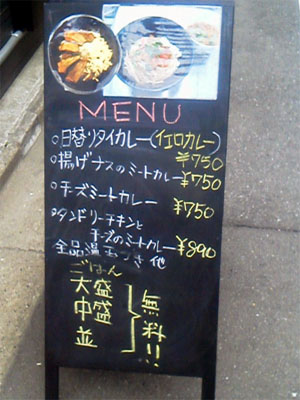 MENU
○日替りタイカレー(イエロカレー)
¥750
○揚げナスのミートカレー ¥750
○チーズミートカレー ¥750
○タンドリーチキンと
チーズのミートカレー ¥890
全品温玉つき 他
ごはん
大盛
中盛
並
無料!!